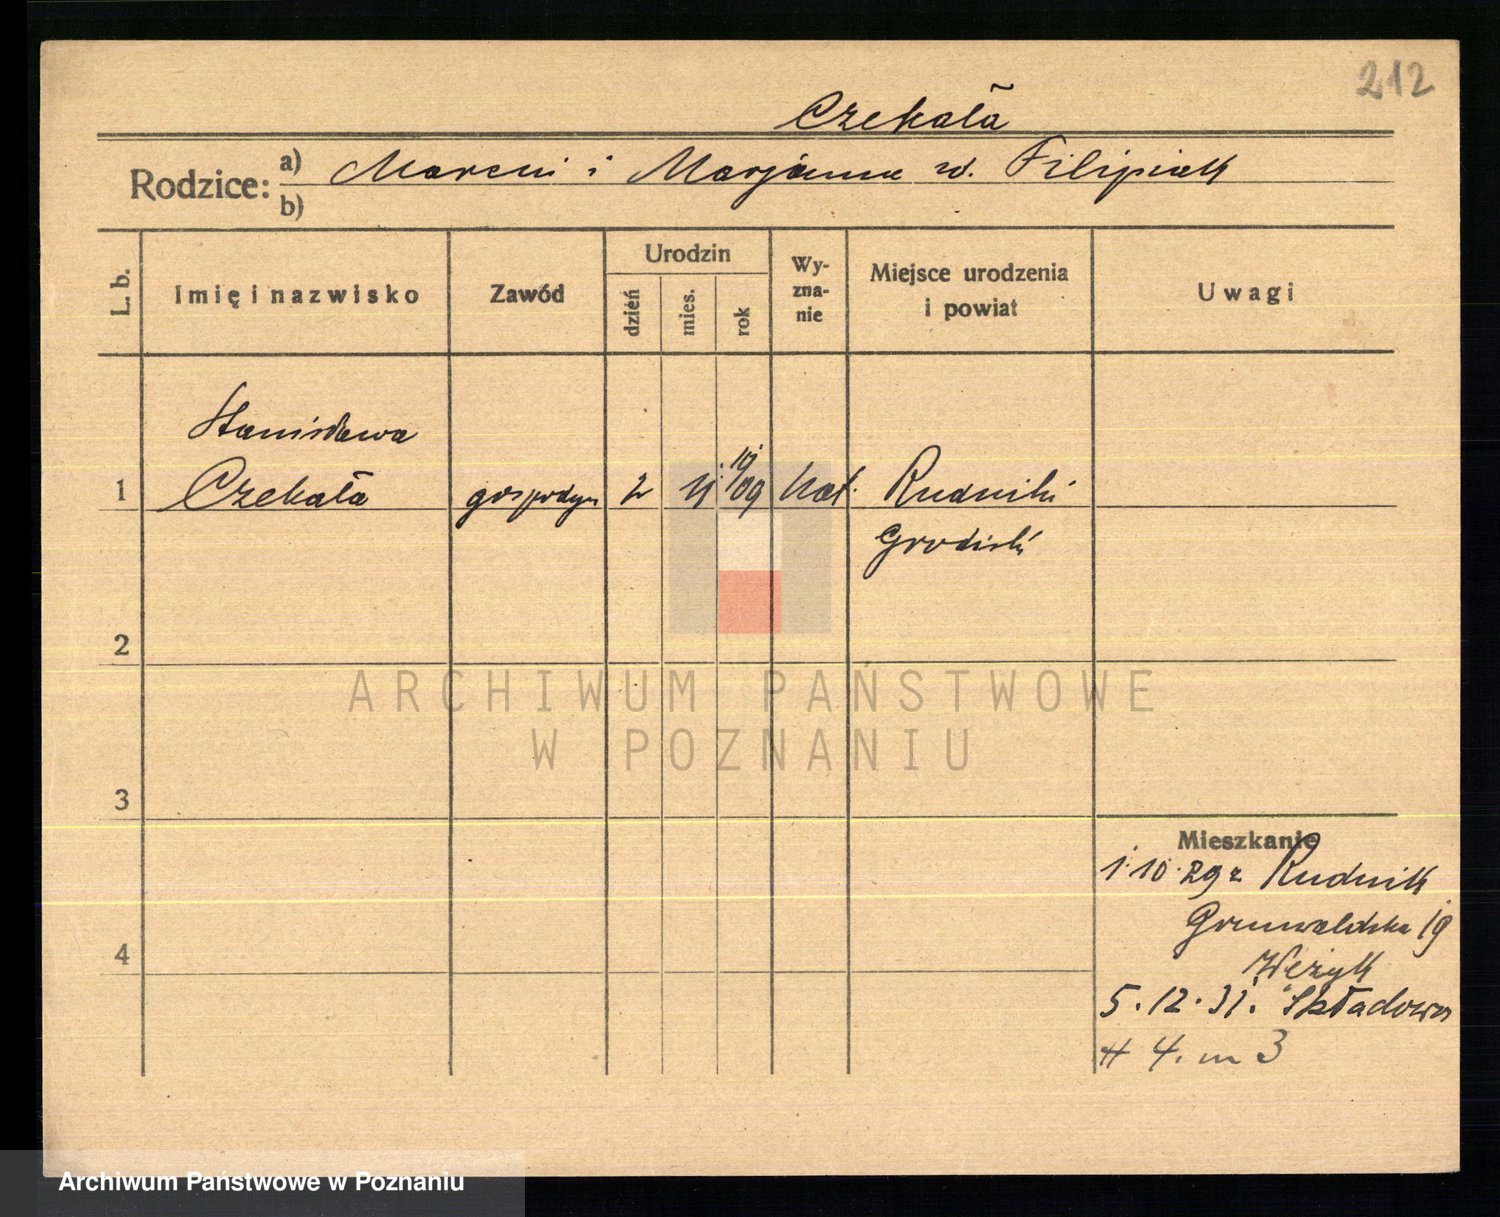 212
Czekała
Rodzice: a) Marcin i Marjanna z d. Filipiak
b)
L. b.
Imię i nazwisko
Zawód
Urodzin
dzień
mies.
rok
Wy-
zna-
nie
Miejsce urodzenia
i powiat
Uwagi
Stanisława
1 Czekała gospodyni 2 11 1909 kat. Rudniki
Grodzisk
2
ARCHIWUM PAŃSTWOWE
W POZNANIU
3
Mieszkanie
1.10.29 z Rudnik
Grunwaldzka 19
4
Wężyk
5.12.31. Składowa
# 4. m 3
Archiwum Państwowe w Poznaniu